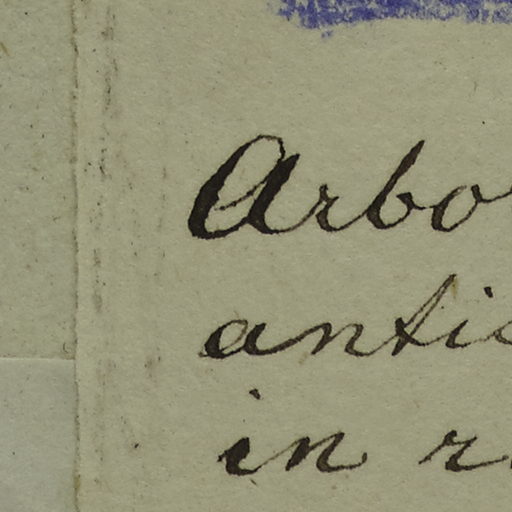 Arbo
anti
in r